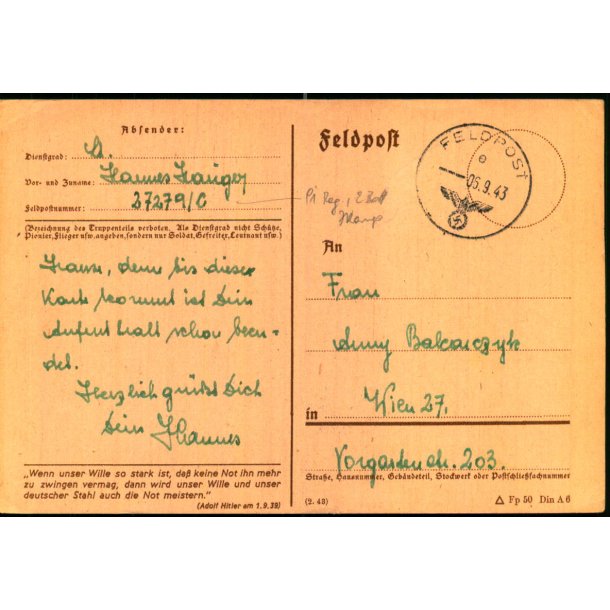 Absender:
Dienstgrad:
Vor- und Zuname: Hannes
Feldpostnummer: 37279/C
(Bezeichnung des Truppenteils verboten. Als Dienstgrad nicht Schütze,
Pionier, Flieger usw. angeben, sondern nur Soldat, Gefreiter, Leutnant usw.)
denn bis diese
Karte kommt ist Dein
Aufenthalt schon been-
det.
Herzlich grüßt Dich
Dein Hannes
„Wenn unser Wille so stark ist, daß keine Not ihn mehr
zu zwingen vermag, dann wird unser Wille und unser
deutscher Stahl auch die Not meistern."
(Adolf Hitler am 1.9.39)
Feldpost
FELDPOST
e
-05.9.43
Pi Reg. 1, 2 Batt
An
Frau
Anny Balcarczyk
in Wien 27.
Vorgartenstr. 203.
Straße, Hausnummer, Gebäudeteil, Stockwerk oder Postschließfachnummer
(2. 43)
Fp 50 Din A 6